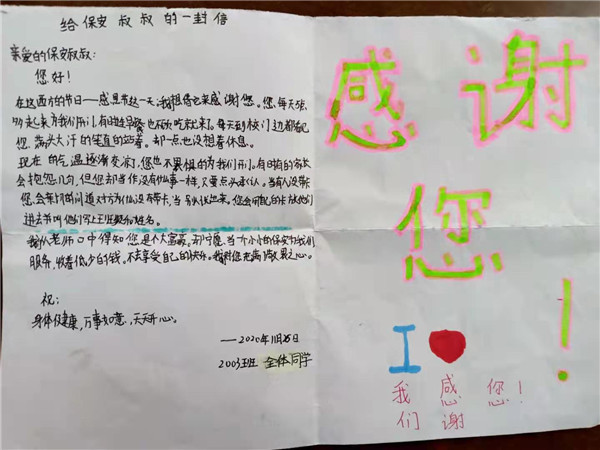 给保安叔叔的一封信
亲爱的保安叔叔:
您好!
在这西方的节日——感恩节这一天,我想借它来感谢您。您,每天
起来为我们开门,有时连早饭也不吃就来了。每天到校门边都看见
您,满头大汗的笔直的站着。却一点也没想着休息。
现在的气温逐渐变凉了,您也不畏惧的为我们开门。有时有的家长
会抱怨几句,但您却当作没有什么事一样,
您,会亲切的问道对方为什么没有带卡,
进去并叫他们写上班级和姓名。
我从老师口中得知您是个大富翁,却宁愿当一个小小的保安为我们
服务,收着低少的钱。不去享受自己的快乐。我对您充满了敬畏之心。
祝:
身体健康,万事如意,天天开心。
——2020年11月26日
2003班 全体同学
感谢
您!
I
我感您!
们谢